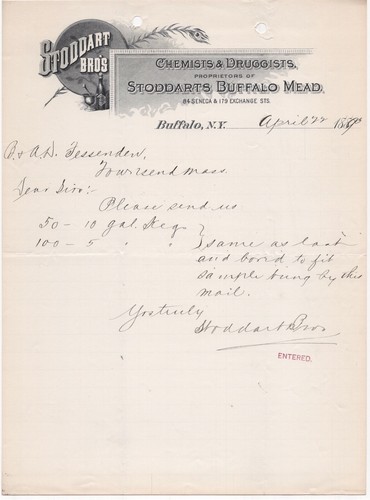 STODDART
BRO'S
CHEMISTS & DRUGGISTS,
PROPRIETORS OF
STODDARTS BUFFALO MEAD,
84 SENECA & 179 EXCHANGE STS.
Buffalo, N.Y. April 22
B & A.D. Fessenden,
Townsend Mass.
Dear Sirs:-
Please send us
50 - 10 gal. Kegs }
100 - 5 " " } same as last
and bored to fit
sample bung by this
mail.
Yostruly
Stoddart Bros
ENTERED.